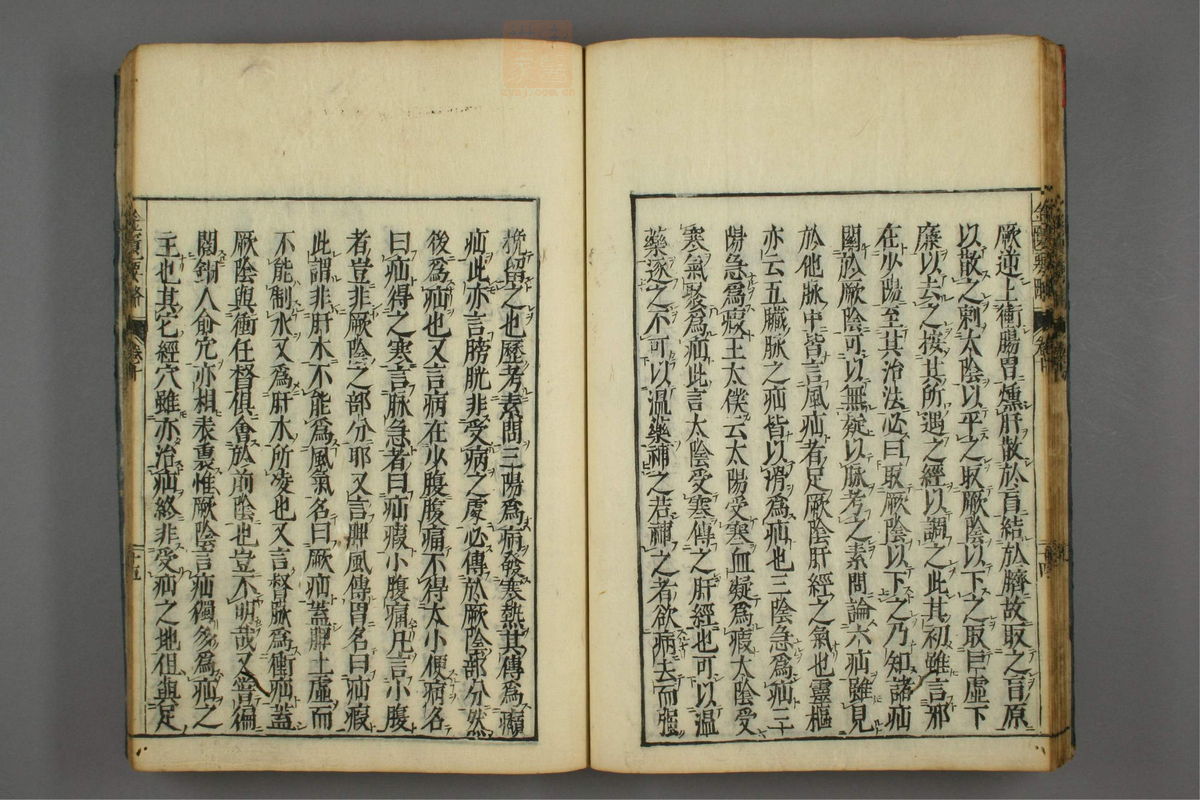 厥逆上衝腸胃燻肝散於肓結於臍故取之肓原
以散之刺太陰以平之取厥陰以下之取巨虛下
廉以去之按其所過之經以調之此其初雖言邪
在少陽至其治法必曰取厥陰以下之乃知諸疝
關於厥陰可以無疑以脉考之素問論六疝雖見
於他脉中皆言風疝者足厥陰肝經之氣也靈樞
亦云五臟脉之疝皆以滑為疝也三陰急為疝三
陽急為瘕王太僕云太陽受寒血凝為瘕太陰受
寒氣聚為疝此言太陰受寒傳之肝經也可以温
藥逐之不可以温藥補之若補之者欲病去而強
挽留之也歷考素問三陽為病發寒熱其傳為㿗
疝此亦言膀胱非受病之處必傳於厥陰部分然
後為疝也又言病在少腹腹痛不得大小便病名
曰疝得之寒言脉急者曰疝瘕小腹痛凡言小腹
者豈非厥陰之部分耶又言脾風傳胃名曰疝瘕
此謂非肝木不能為風氣名曰厥疝蓋脾土虛而
不能制水又為肝木所凌也又言督脉為衝疝蓋
厥陰與衝任督俱會於前陰也豈不明哉又嘗徧
閱銅人俞穴亦相表裏惟厥陰言疝獨多為疝之
主也其它經穴雖亦治疝終非受疝之地但與足